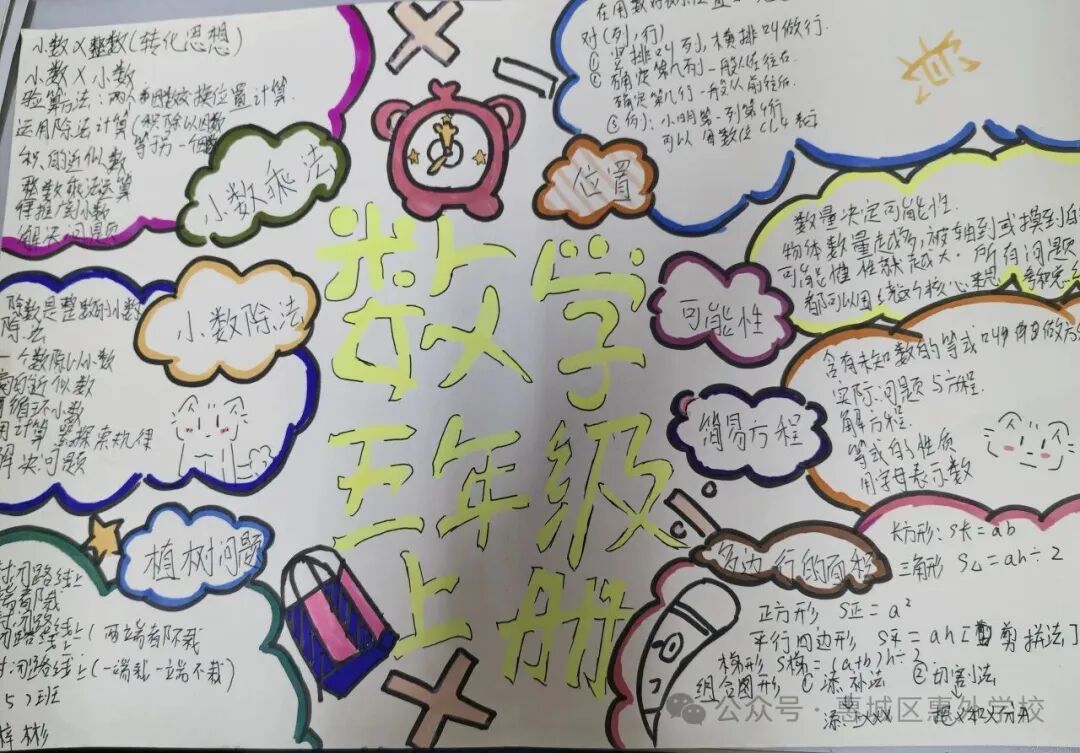 小数×整数(转化思想)
小数×小数
验算方法:两个因数交换位置计算.
运用除法计算(积除以因数
等于另一个因数
积的近似数
整数乘法运算
律推广到小数
解决问题
小数乘法
除数是整数的小数
除法
一个数除以小数
商的近似数
循环小数
用计算器探索规律
解决问题
小数除法
植树问题
封闭路线上
(两端都不栽
(一端栽一端不栽)
5)班
梓彬
数学
五年级
上册
对(列,行)
① 竖排叫列,横排叫做行.
② 确定第几列一般从左往右.
确定第几行一般从前往后.
位置
数量决定可能性.
物体数量越多,被抽到或摸到
可能性就越大.所有问题
可能性
含有未知数的等式叫做方
实际问题与方程.
解方程.
等式的性质
用字母表示数
简易方程
多边行的面积
长方形:S长=ab
三角形 S△=ah÷2
正方形 S正=a²
平行四边形 S平=ah[剪拼法]
梯形 S梯=(a+b)h÷2
组合图形 ①添补法 ②切割法
公众号·惠城区惠外学校